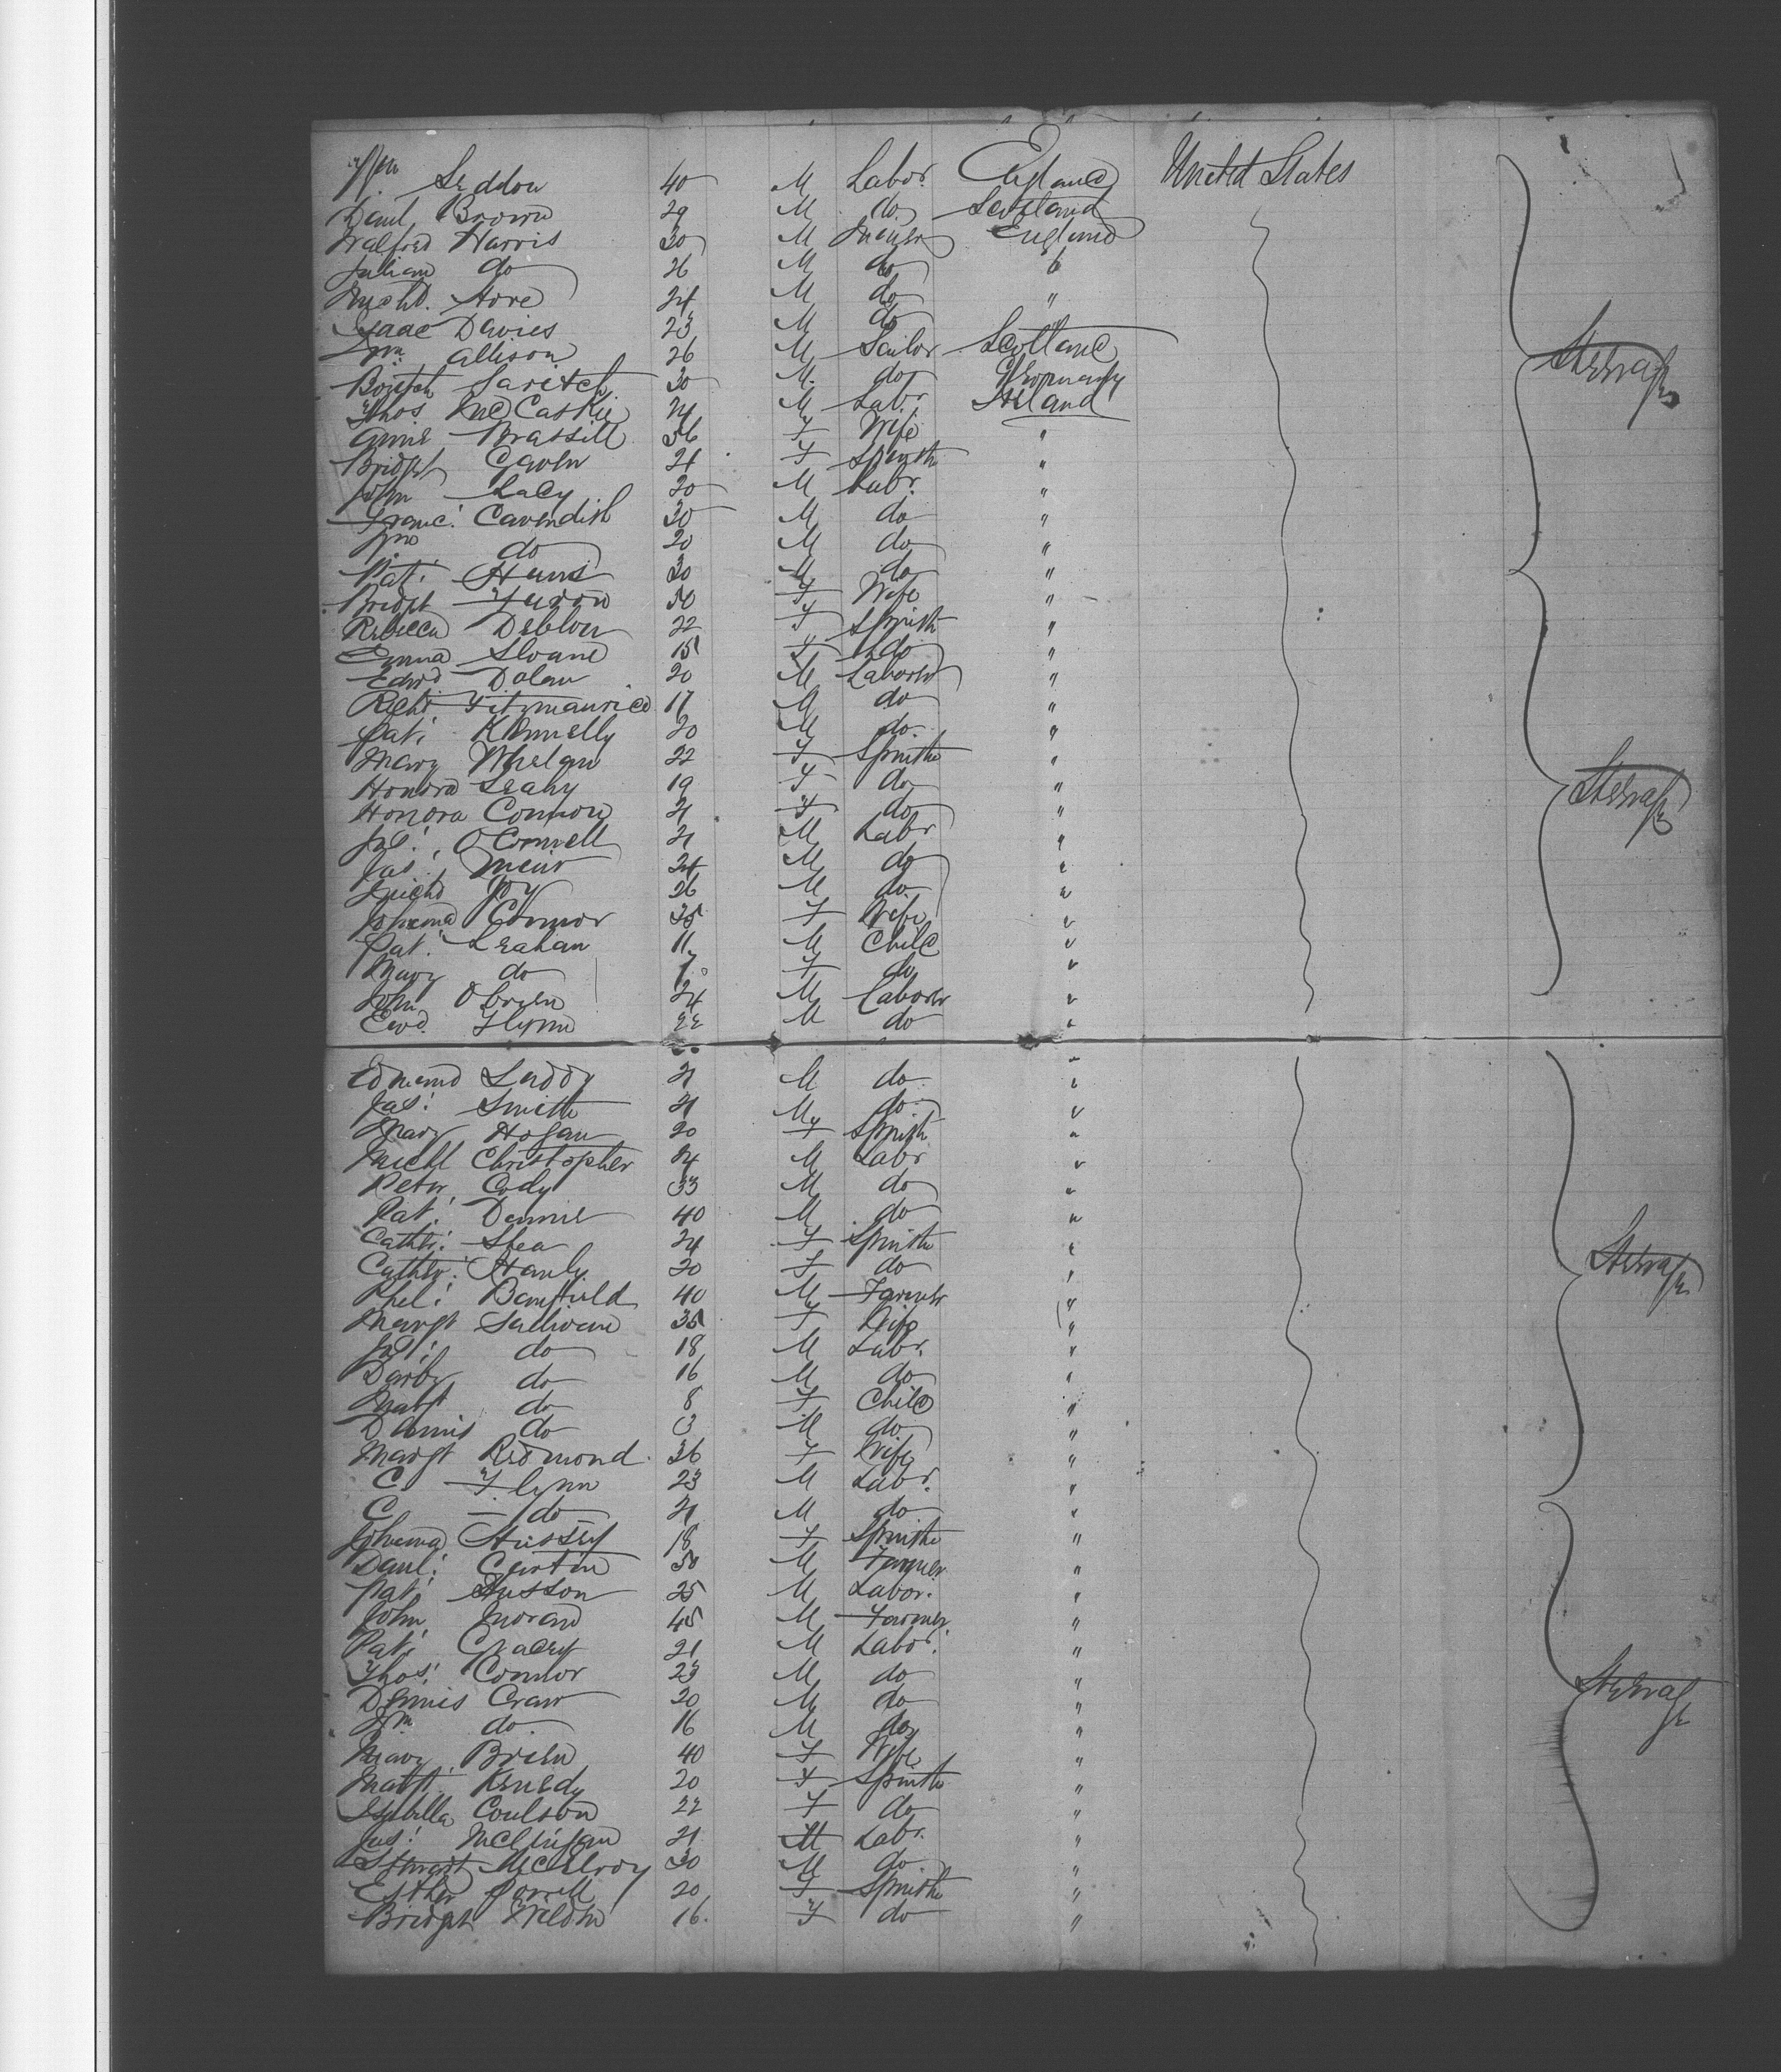 Wm Seddon 40 M Labor. England United States
Danl. Brown 29 M do Scotland
Walford Harris 30 M Miner England
Julian do 26 M do "
Richd. Hore 24 M do "
Isaac Davies 23 M do
Wm. Allison 26 M Sailor Scotland Steerage
30 M. do Germany
Thos McCaskie 24 M Labr Ireland
Annie Brassill 36 F Wife "
Bridget Gaven 21 F Spinstr "
John Lacy 20 M Labr. "
Franc: Cavendish 30 M do "
Jno do 20 M do "
Pat: 30 M do "
Bridget 50 F Wife "
Rebecca 22 F Spinstr "
Emma Sloane 15 F do "
Edwd Dolan 20 M Laborer "
Richd Fitzmaurice 17 M do "
Pat: Kennelly 20 M do "
Mary Whelan 22 F Spinstr "
Honora Leahy 19 F do " Steerage
Honora Connor 21 F do "
Jno: O'Connell 21 M Labr "
Jas: 24 M do "
Michd Joy 26 M do "
Johanna Connor 35 F Wife "
Pat: Leahan 11 M Child "
Mary do 7 F do "
John Obrien 24 M Laborer "
Ewd. Flynn 22 M do "
Edmund Leddy 21 M do "
Jas: Smith 21 M do "
Mary Hogan 20 F Spinstr "
Michl Christopher 24 M Labr "
Peter Cody 33 M do "
Pat: 40 M do "
Cather: Shea 24 F Spinstr " Steerage
Cather: Hanly 20 F do "
Phel: Banfield 40 M Farmer "
Margt Sullivan 35 F Wife "
Jno: do 18 M Labr. "
Darby do 16 M do "
Margt do 8 F Child "
Dennis do 3 M do "
Margt Redmond 36 F Wife "
C. Flynn 23 M Labr. "
C — do — 21 M do "
Johanna Hussey 18 F Spinstr "
Danl: Curtin 50 M Farmer "
Pat: 25 M Labor. "
John Moran 45 M Farmer "
Pat: Gracey 21 M Labor. "
Thos: Connor 23 M do " Steerage
Dennis Craw 20 M do "
Wm do 16 M do "
Mary Brien 40 F Wife "
Margt Kenedy 20 F Spinstr "
Isabella Coulson 22 F do "
Jas: 21 M Labr. "
Stewart McElroy 30 M do "
Esther 20 F Spinstr "
Bridget 16. F do "